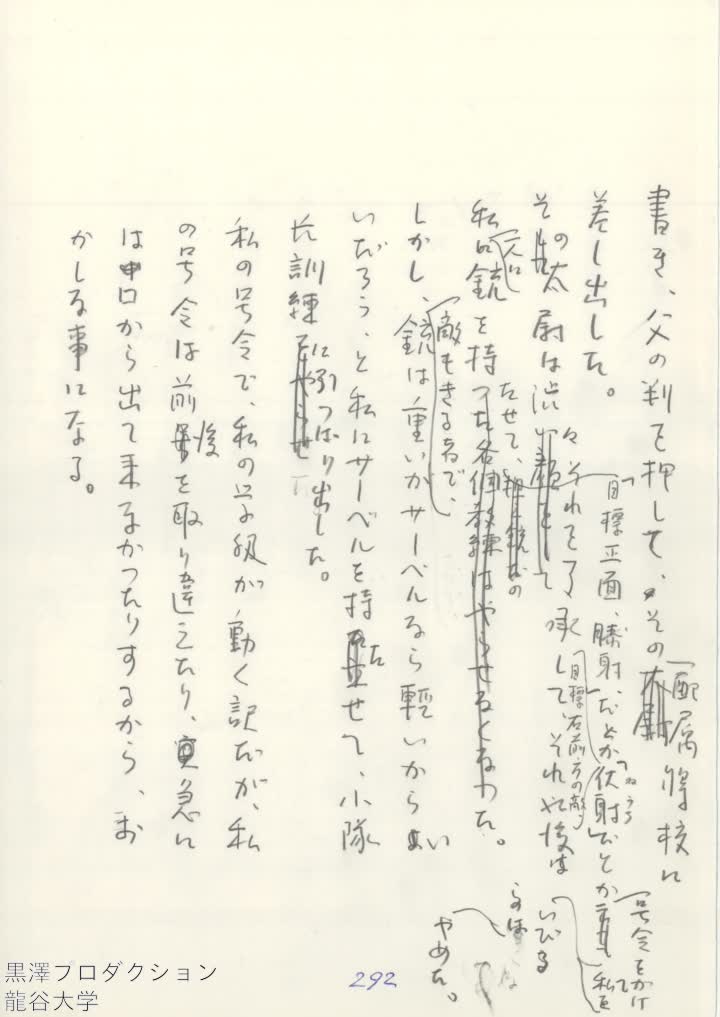 書き、父の判を押して、その配属将校に
差し出した。
その大尉は渋々それを了承して、それ以後は
「目標正面、膝射、だとか伏射だとか
目標右前方の敵
ねらう
号令をかけて
私を
いびる
のは
やめた。
私に銃を持たせて、
敵もさる者で、
しかし、銃は重いがサーベルなら軽いからいい
いだろう、と私にサーベルを持たせて、小隊
長訓練に引っぱり出した。
私の号令で、私の学級が動く訳だが、私
の号令は前後を取り違えたり、急に
は口から出て来なかったりするから、お
かしな事になる。
292
黒澤プロダクション
龍谷大学